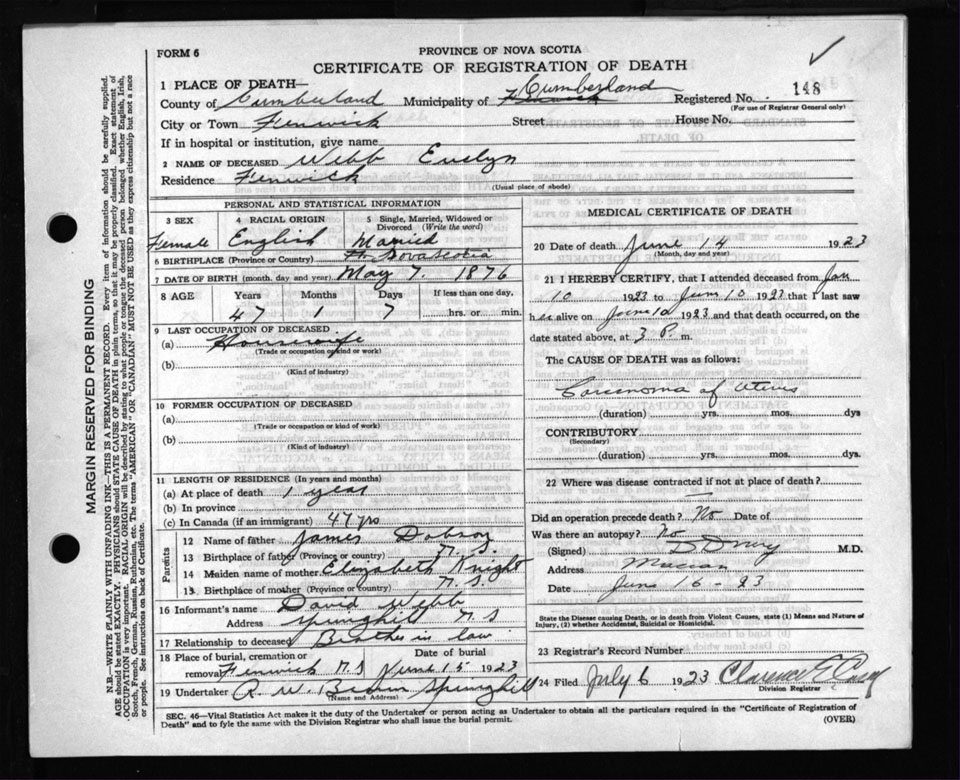 FORM 6
PROVINCE OF NOVA SCOTIA
CERTIFICATE OF REGISTRATION OF DEATH
1 PLACE OF DEATH—
County of Cumberland Municipality of Fenwick Cumberland Registered No. 148
(For use of Registrar General only)
City or Town Fenwick Street House No.
If in hospital or institution, give name
2 NAME OF DECEASED Webb Evelyn
Residence Fenwick
(Usual place of abode)
PERSONAL AND STATISTICAL INFORMATION
3 SEX 4 RACIAL ORIGIN 5 Single, Married, Widowed or Divorced (Write the word)
Female English Married
6 BIRTHPLACE (Province or Country) Nova Scotia
7 DATE OF BIRTH (month, day and year) May 7. 1876
8 AGE Years Months Days If less than one day,
47 1 7 hrs. or min.
9 LAST OCCUPATION OF DECEASED
(a) Housewife
(Trade or occupation or kind or work)
(b)
(Kind of industry)
10 FORMER OCCUPATION OF DECEASED
(a)
(Trade or occupation or kind of work)
(b)
(Kind of industry)
11 LENGTH OF RESIDENCE (In years and months)
(a) At place of death 1 year
(b) In province
(c) In Canada (if an immigrant) 47 yrs
Parents
12 Name of father James Dobson
13 Birthplace of father (Province or country) N. S.
14 Maiden name of mother Elizabeth Knight
13 Birthplace of mother (Province or country) N. S.
16 Informant's name David Webb
Address Springhill N S
17 Relationship to deceased Brother in law
18 Place of burial, cremation or removal Fenwick N S Date of burial June 15 1923
19 Undertaker R. W. Brown Springhill
(Name and Address)
MEDICAL CERTIFICATE OF DEATH
20 Date of death June 14 1923
(Month, day and year)
21 I HEREBY CERTIFY, that I attended deceased from Jan
10 1923 to Jun 10 1923 that I last saw
her alive on June 10 1923 and that death occurred, on the
date stated above, at 3 P. m.
The CAUSE OF DEATH was as follows:
Carcinoma of Uterus
(duration) yrs. mos. dys
CONTRIBUTORY
(Secondary)
(duration) yrs. mos. dys.
22 Where was disease contracted if not at place of death?
Did an operation precede death? No Date of
Was there an autopsy? No
(Signed) M.D.
Address Maccan
Date June 16 - 23
State the Disease causing Death, or in death from Violent Causes, state (1) Means and Nature of
Injury, (2) whether Accidental, Suicidal or Homicidal.
23 Registrar's Record Number
24 Filed July 6 1923 Clarence E
Division Registrar
SEC. 46—Vital Statistics Act makes it the duty of the Undertaker or person acting as Undertaker to obtain all the particulars required in the "Certificate of Registration of
Death" and to fyle the same with the Division Registrar who shall issue the burial permit.
(OVER)
MARGIN RESERVED FOR BINDING
N.B.—WRITE PLAINLY WITH UNFADING INK—THIS IS A PERMANENT RECORD. Every item of information should be carefully supplied.
AGE should be stated EXACTLY. PHYSICIANS should STATE CAUSE OF DEATH in plain terms, so that it may be properly classified. Exact statement of
OCCUPATION is very important. RACIAL ORIGIN will be described by stating to what people or tongue the deceased person belonged whether English, Irish,
Scotch, French, German, Russian, Ruthenian, etc. The terms "AMERICAN" or "CANADIAN" MUST NOT BE USED as they express citizenship but not a race
or people. See instructions on back of Certificate.